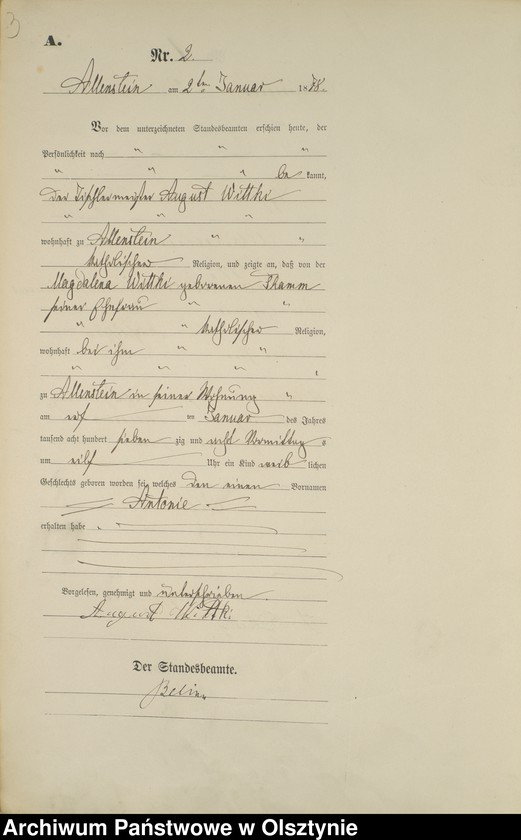 3
A.
Nr. 2.
Allenstein am 2ten Januar 1878.
Vor dem unterzeichneten Standesbeamten erschien heute, der
Persönlichkeit nach " " "
" " " be kannt,
der Tischlermeister August Wittki
" " "
wohnhaft zu Allenstein " "
katholischer Religion, und zeigte an, daß von der
Magdalena Wittki geborenen Thamm
seiner Ehefrau " "
" " katholischer Religion,
wohnhaft bei ihm " "
" " " " ,
zu Allenstein in seiner Wohnung "
am ten Januar des Jahres
tausend acht hundert sieben zig und acht Vormittags
um eilf Uhr ein Kind weib lichen
Geschlechts geboren worden sei, welches den einen Vornamen
Antonie
erhalten habe.
Vorgelesen, genehmigt und unterschrieben
August Wittki
Der Standesbeamte.
Archiwum Państwowe w Olsztynie